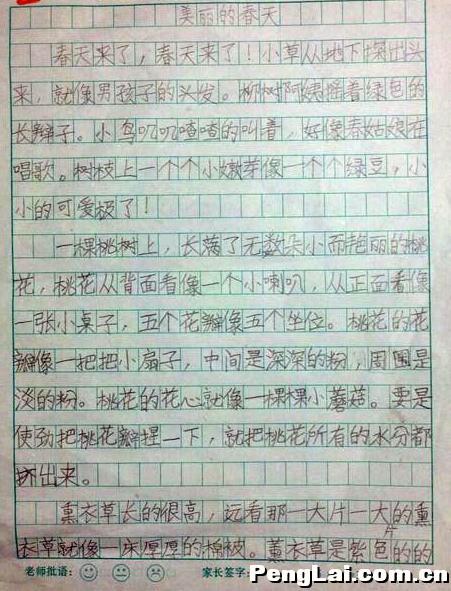 美丽的春天
春天来了，春天来了！小草从地下探出头
来，就像男孩子的头发。柳树阿姨摇着绿色的
长辫子。小鸟叽叽喳喳的叫着，好像春姑娘在
唱歌。树枝上一个个小嫩芽像一个个绿豆，小
小的可爱极了！
一棵桃树上，长满了无数朵小而艳丽的桃
花，桃花从背面看像一个小喇叭，从正面看像
一张小桌子，五个花瓣像五个坐位。桃花的花
瓣像一把把小扇子，中间是深深的粉，周围是
淡的粉。桃花的花心就像一棵棵小蘑菇。要是
使劲把桃花瓣捏一下，就把桃花所有的水分都
挤出来。
薰衣草长的很高，远看那一大片一大片的薰
衣草就像一床厚厚的棉被。薰衣草是紫色的的
老师批语： 家长签字：
PengLai.com.cn